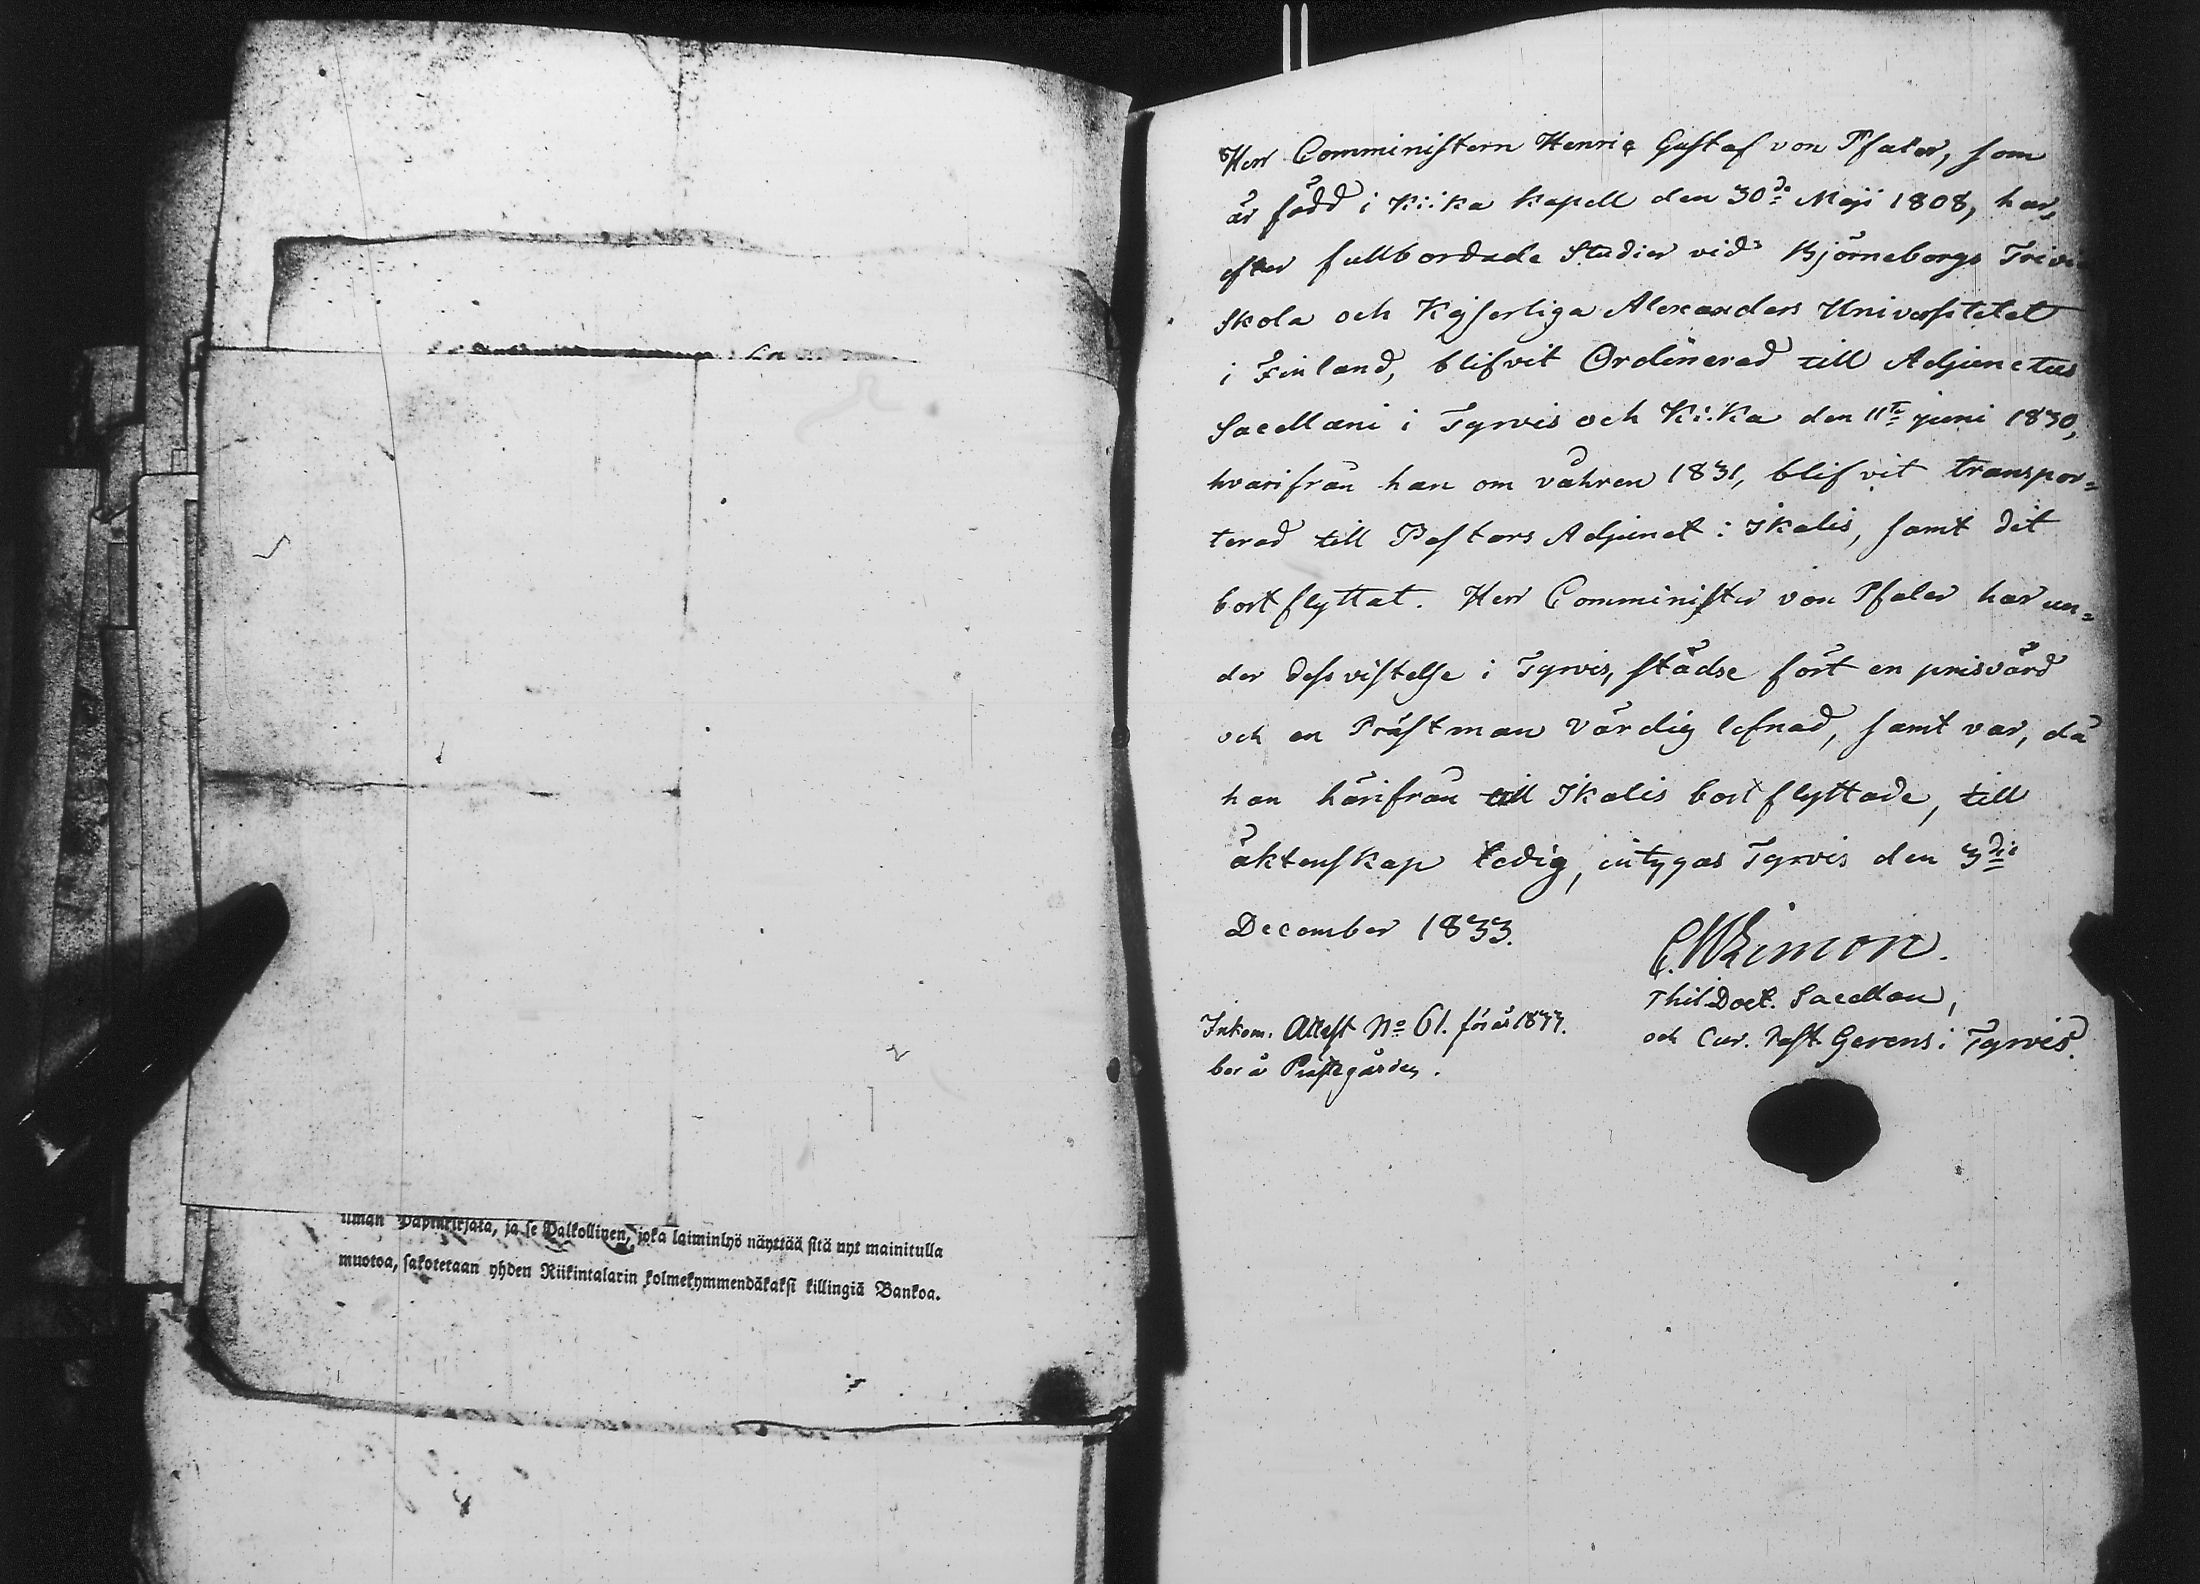 ilman Papinkirjata, ja se Palkollinen, joka laiminlyö näyttää sitä nyt mainitulla
muotoa, sakotetaan yhden Riikintalarin kolmekymmendäkaksi killingiä Bankoa.
Herr Comministern Henric Gustaf von Pfaler, som
är född i Kiika kapell den 30de Maji 1808, har,
efter fullbordade Studier vid Björneborgs Trivi
Skola och Kejserliga Alexanders Universitetet
i Finland, blifvit Ordinerad till Adjunctus
Sacellani i Tyrvis och Kiika den 11te juni 1830,
hvarifrån han om våhren 1831, blifvit transpor=
terad till Pastors Adjunct i Ikalis, samt dit
bortflyttat. Herr Comminister von Pfaler har un=
der dess vistelse i Tyrvis, städse fört en prisvärd
och en Prästman värdig lefnad, samt var, då
han härifrån till Ikalis bortflyttade, till
äktenskap ledig, intygas Tyrvis den 3die
December 1833.
Phil Doct. Sacellan,
och Cur. Past. Gerens i Tyrvis.
Inkom. Attest No 61. för år 1833.
bor å Prästegården.